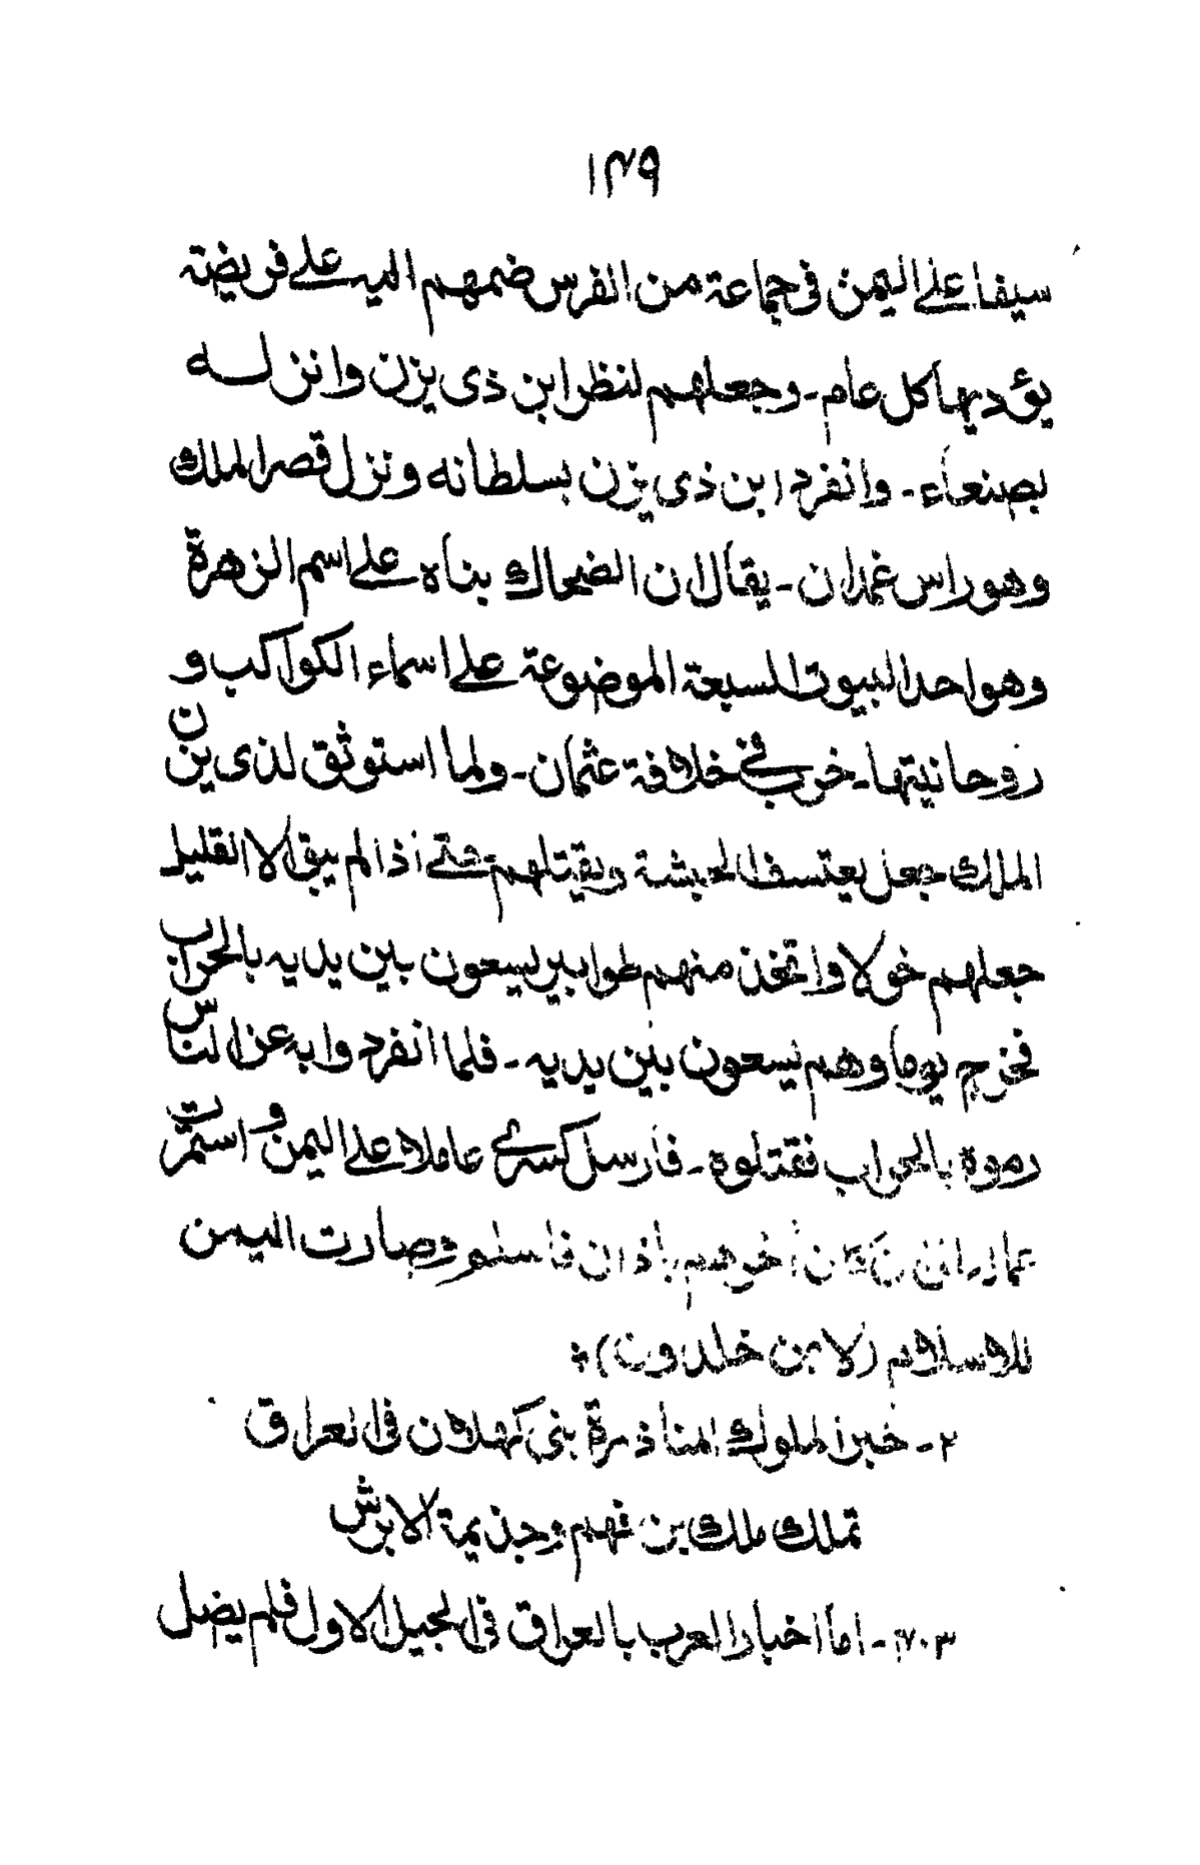 ١٣٩
سيفا على اليمن فى جماعة من الفرس ضمهم اليه على فريضة
يؤديها كل عام ـ وجعلهم لنظر ابن ذى يزن وانزله
بصنعاء ـ وانفرد ابن ذى يزن بسلطانه ونزل قصر الملك
وهو راس غمدان ـ يقال ان الضحاك بناه على اسم الزهرة
وهو احد البيوت السبعة الموضوعة على اسماء الكواكب و
روحانيتها ـ خرب فى خلافة عثمان ـ ولما استوثق لذى يزن
الملك جعل يعتسف الحبشة ويقتلهم حتى اذا لم يبق الا القليل
جعلهم خولا واتخذ منهم طوابير يسعون بين يديه بالحراب
فخرج يوما وهم يسعون بين يديه ـ فلما انفرد وا به عن الناس
رموه بالحراب فقتلوه ـ فارسل كسرى عاملا على اليمن واستمرت
عماله الى ان كان اخرهم باذان فاسلم وصارت اليمن
للاسلام (لابن خلدون) ؞
٢ ـ خبر الملوك المناذرة بنى كهلان فى العراق
تملك ملك بن فهم وجذيمة الابرش
٧٠٣ ـ اما اخبار العرب بالعراق فى الجيل الاول فلم يصل